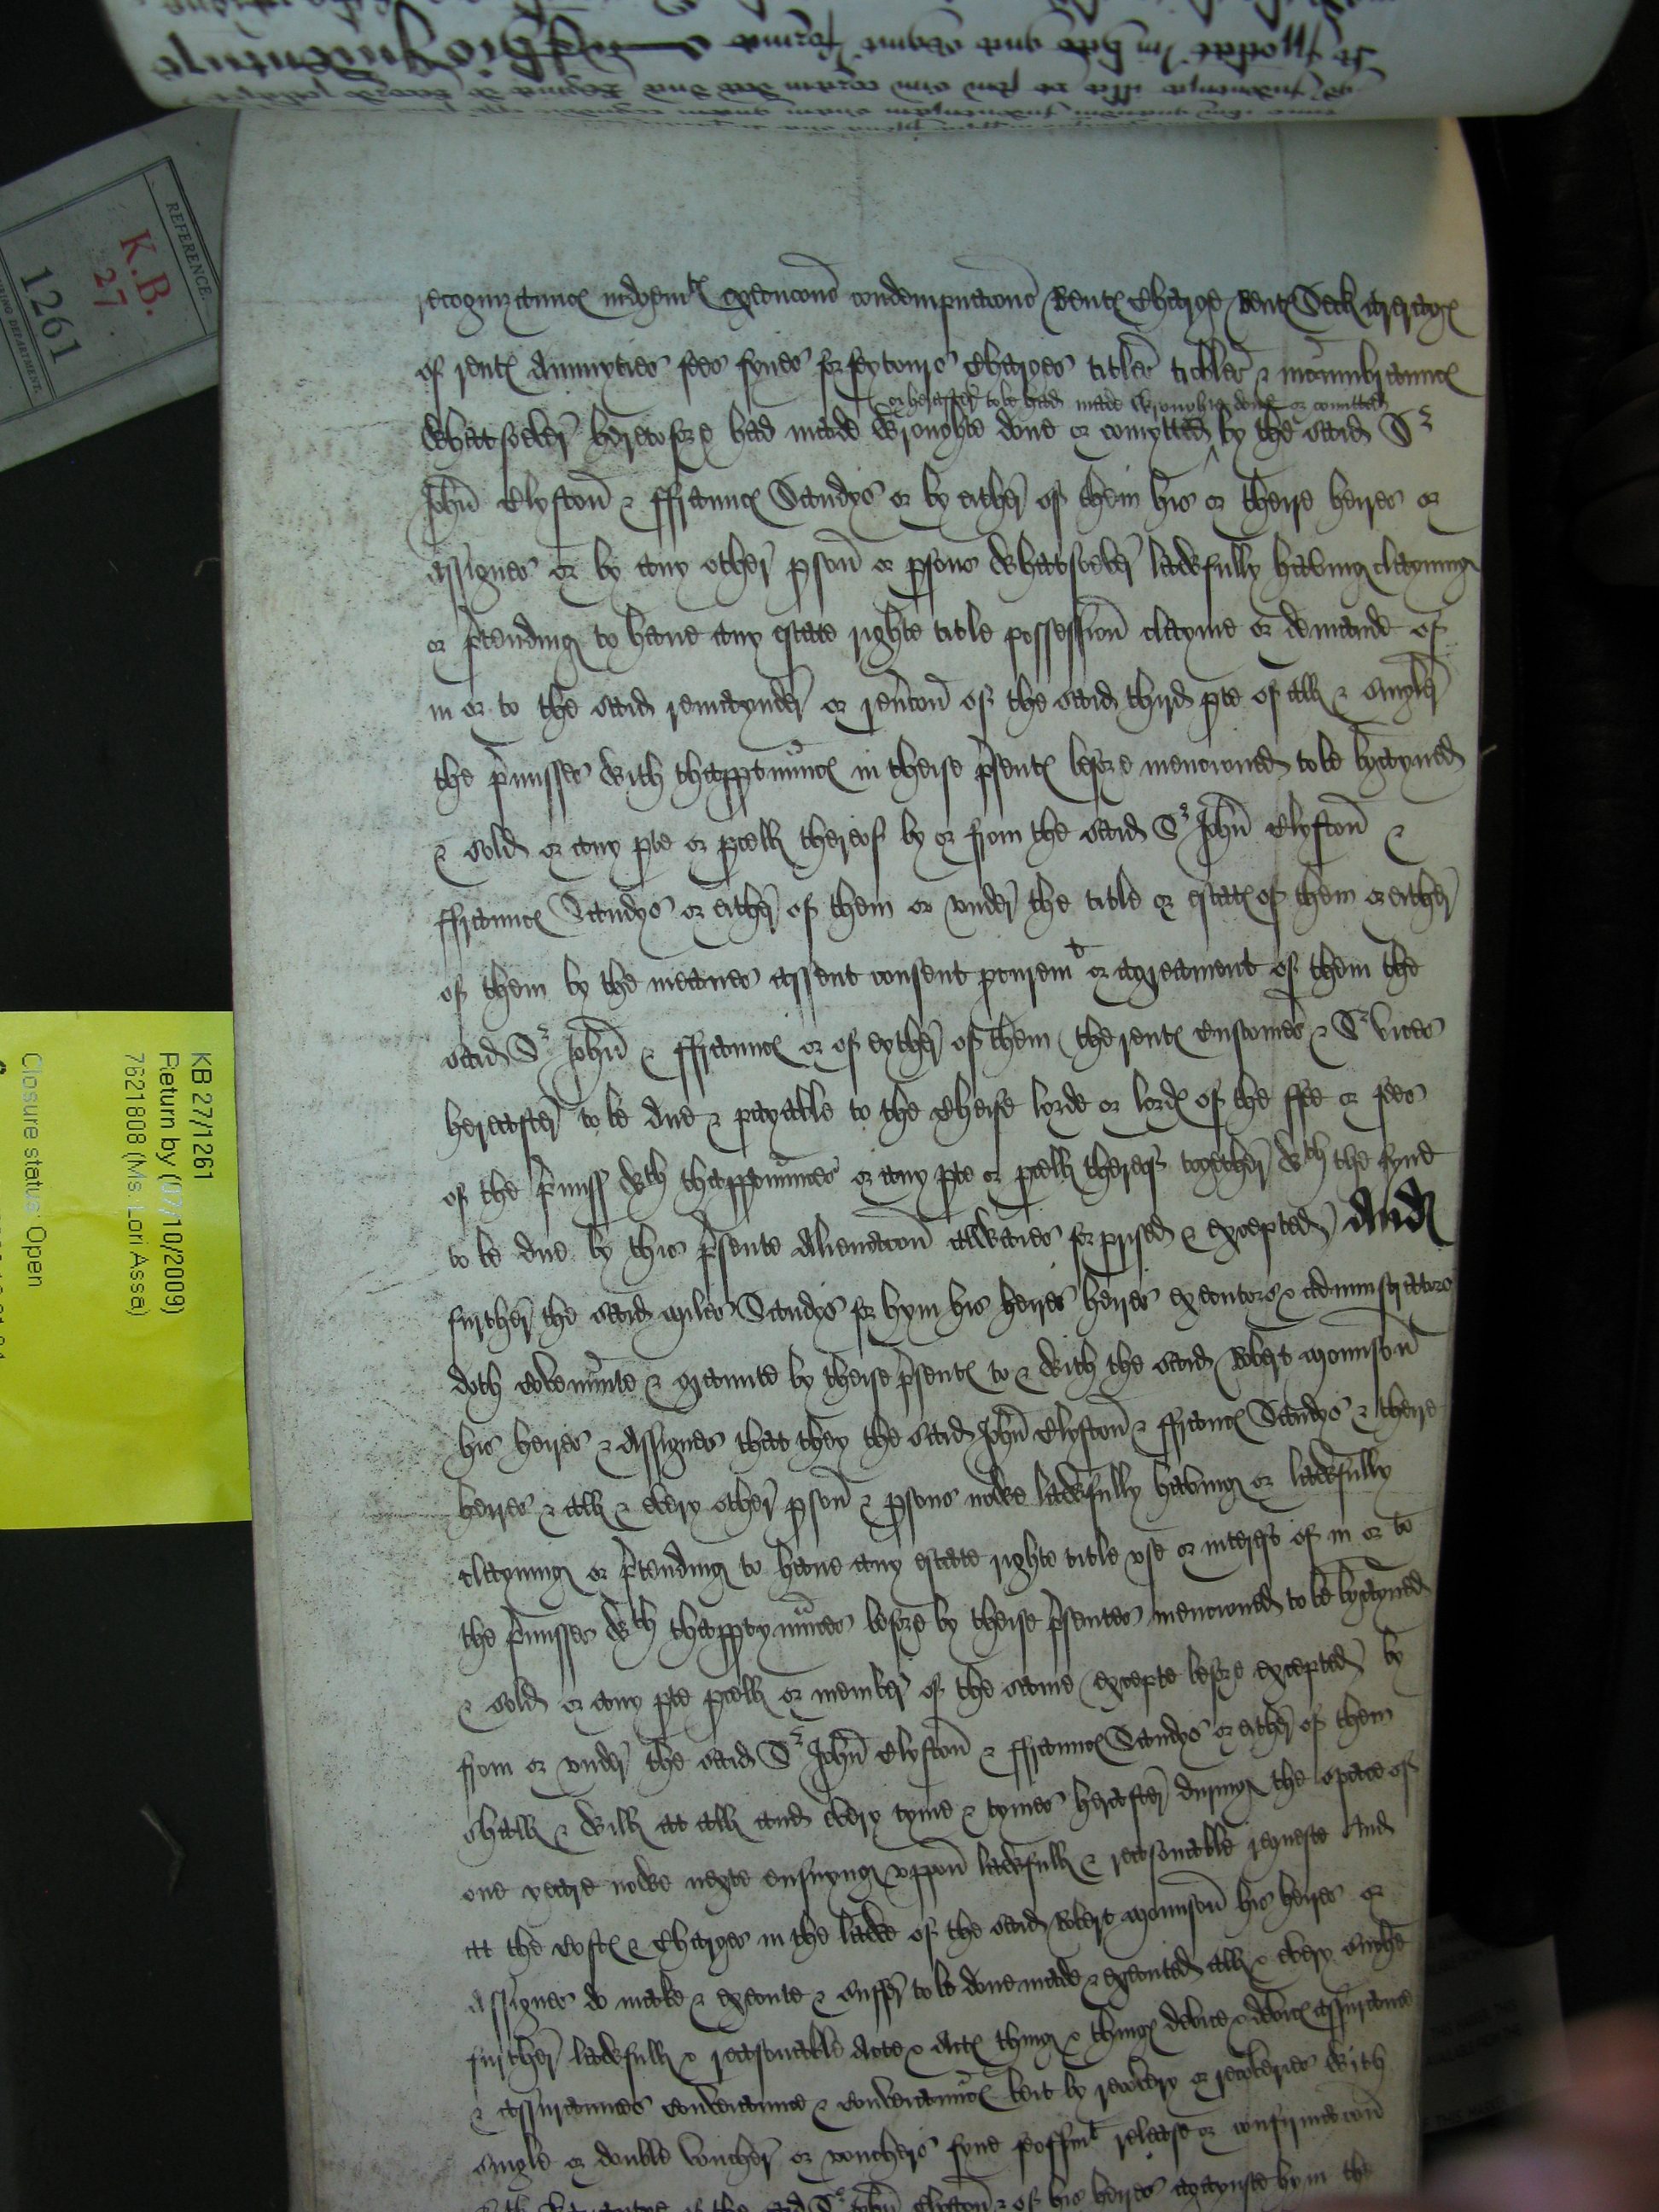 REFERENCE.
K.B.
27
1261
KB 27/1261
Return by (07/10/2009)
7621808 (Ms. Lori Assa)
Closure status: Open
recognizaunces iudgmtes execucons condempnacons Rentes Charge Rentes Seck arerages
of rentes Annuyties fees fynes forfeytours Charges titles & incumbraunces
or hereafter to be had made wroughte done or comitted
whatsoever heretofore had made wroughte done or comytted by the said Sr
John Clyfton & ffraunces Sandys or by either of them his or theire heires or
assignes or by any other pson or psons whatsoever lawfully having clayming
or ptending to haue any estate righte title possession clayme or demande of
in or to the said remaynder or reucon of the said third pte of all & singler
the pmisses with thappertennces in theise psentes before mencioned to be bgayned
& sold or any pte or pcell thereof by or from the said Sr John Clyfton &
ffraunces Sandys or either of them or vnder the title or estates of them or either
of them by the meanes assent consent pcuremt or agreament of them the
said Sr John & ffraunces or of eyther of them (the rentes Customes & Sruices
hereafter to be due & payable to the Cheife lorde or lordes of the ffee or fees
of the pmiss wth thapptennces or any pte or pcell thereof together wth the fyne
to be due by this psente Alienacon allwaies forprised & excepted) And
further the said Miles Sandys for hym his heires heires executors & administrators
doth covennte & graunte by theise psentes to & with the said Robert Mounson
his heires & Assignes that they the said John Clyfton & ffraunces Sandys & theire
heires & all & every other pson & psons nowe lawfully having or lawfully
clayming or ptending to haue any estate righte title vse or interest of in or to
the pmisses wth thapptynnces before by theise psentes mencioned to be bgayned
& sold or any pte pcell or member of the same (excepte before excepted) by
from or vnder the said Sr John Clyfton & ffraunces Sandys or either of them
shall & will at all and every tyme & tymes hereafter during the space of
one yeare nowe nexte ensuyng vppon lawfull & reasonable requeste And
at the costes & Charges in the lawe of the said Robert Mounson his heires or
Assignes do make & execute & suffer to be done made & executed all & every suche
further lawfull & reasonable Acte & Actes thing & thinges device & devices assuraunce
& assuraunces conveiaunce & conveiaunces be it by recovery or recoveries with
single or double voucher or vouchers fyne feoffmt release or confirmacon
Sr John Clyfton & of his heires agaynste hym the